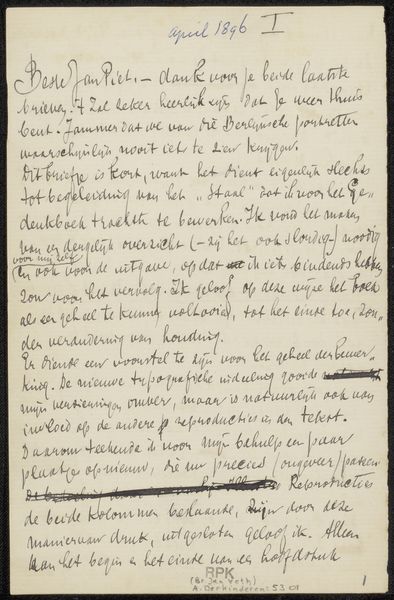 april 1896 I
Beste Jan Piet. – dank voor je beide laatste
brieven. 't Zal zeker heerlijk zijn dat je weer thuis
bent. Jammer dat we van die Berlijnsche portretten
waarschijnlijk nooit iets te zien krijgen.
Dit briefje is kort, want het dient eigenlijk slechts
tot begeleiding van het „Staal" dat ik voor het Ge=
denkboek trachtte te bewerken. Ik vond het maken
van een dergelijk overzicht (– zij het ook slordig –) noodig
voor mij zelf
En ook voor de uitgave, opdat ik iets bindends hebben
zou voor het vervolg. Ik geloof op deze wijze het boek
als een geheel te kunnen volhouden, tot het einde toe, zon=
der verandering van houding.
Er diende een voorstel te zijn voor het geheel der bewer=
king. De nieuwe typografische indeeling gooide
mijn versieringen omver, maar is natuurlijk ook van
invloed op de andere reproducties in den tekst.
Daarom teekende ik voor mijn behulp een paar
plaatjes opnieuw, die nu precies (ongeveer) passen
Reproducties
de beide kolommen beslaande, zijn door deze
manier van druk, uitgesloten geloof ik. Alleen
kan het begin en het einde van een hoofdstuk
RPK
(Br Jan Veth)
A. Derkinderen 53 01
1